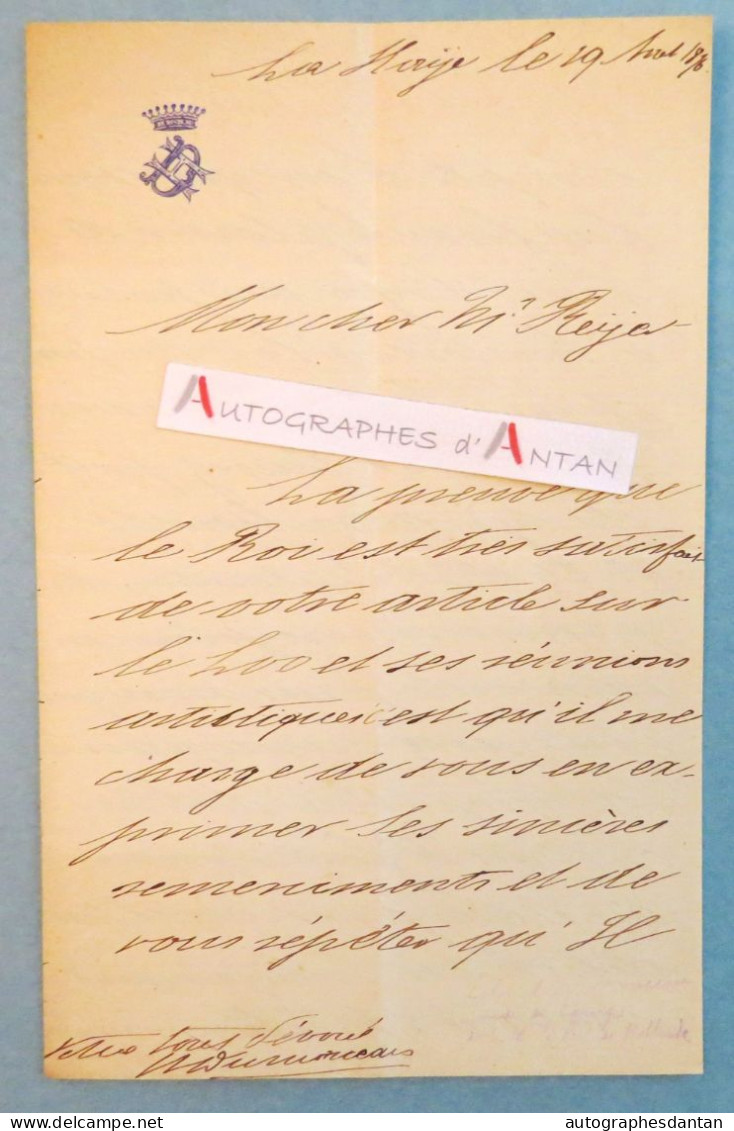 La Haye le 19 Août 1876.
Mon cher Mr. Reyer
AUTOGRAPHES d'ANTAN
La preuve que
le Roi est très satisfait
de votre article sur
le Loo et ses réunions
artistiques c'est qu'il me
charge de vous en ex-
primer ses sincères
remerciments et de
vous répéter qu'Il
Votre tout dévoué
autographesdantan